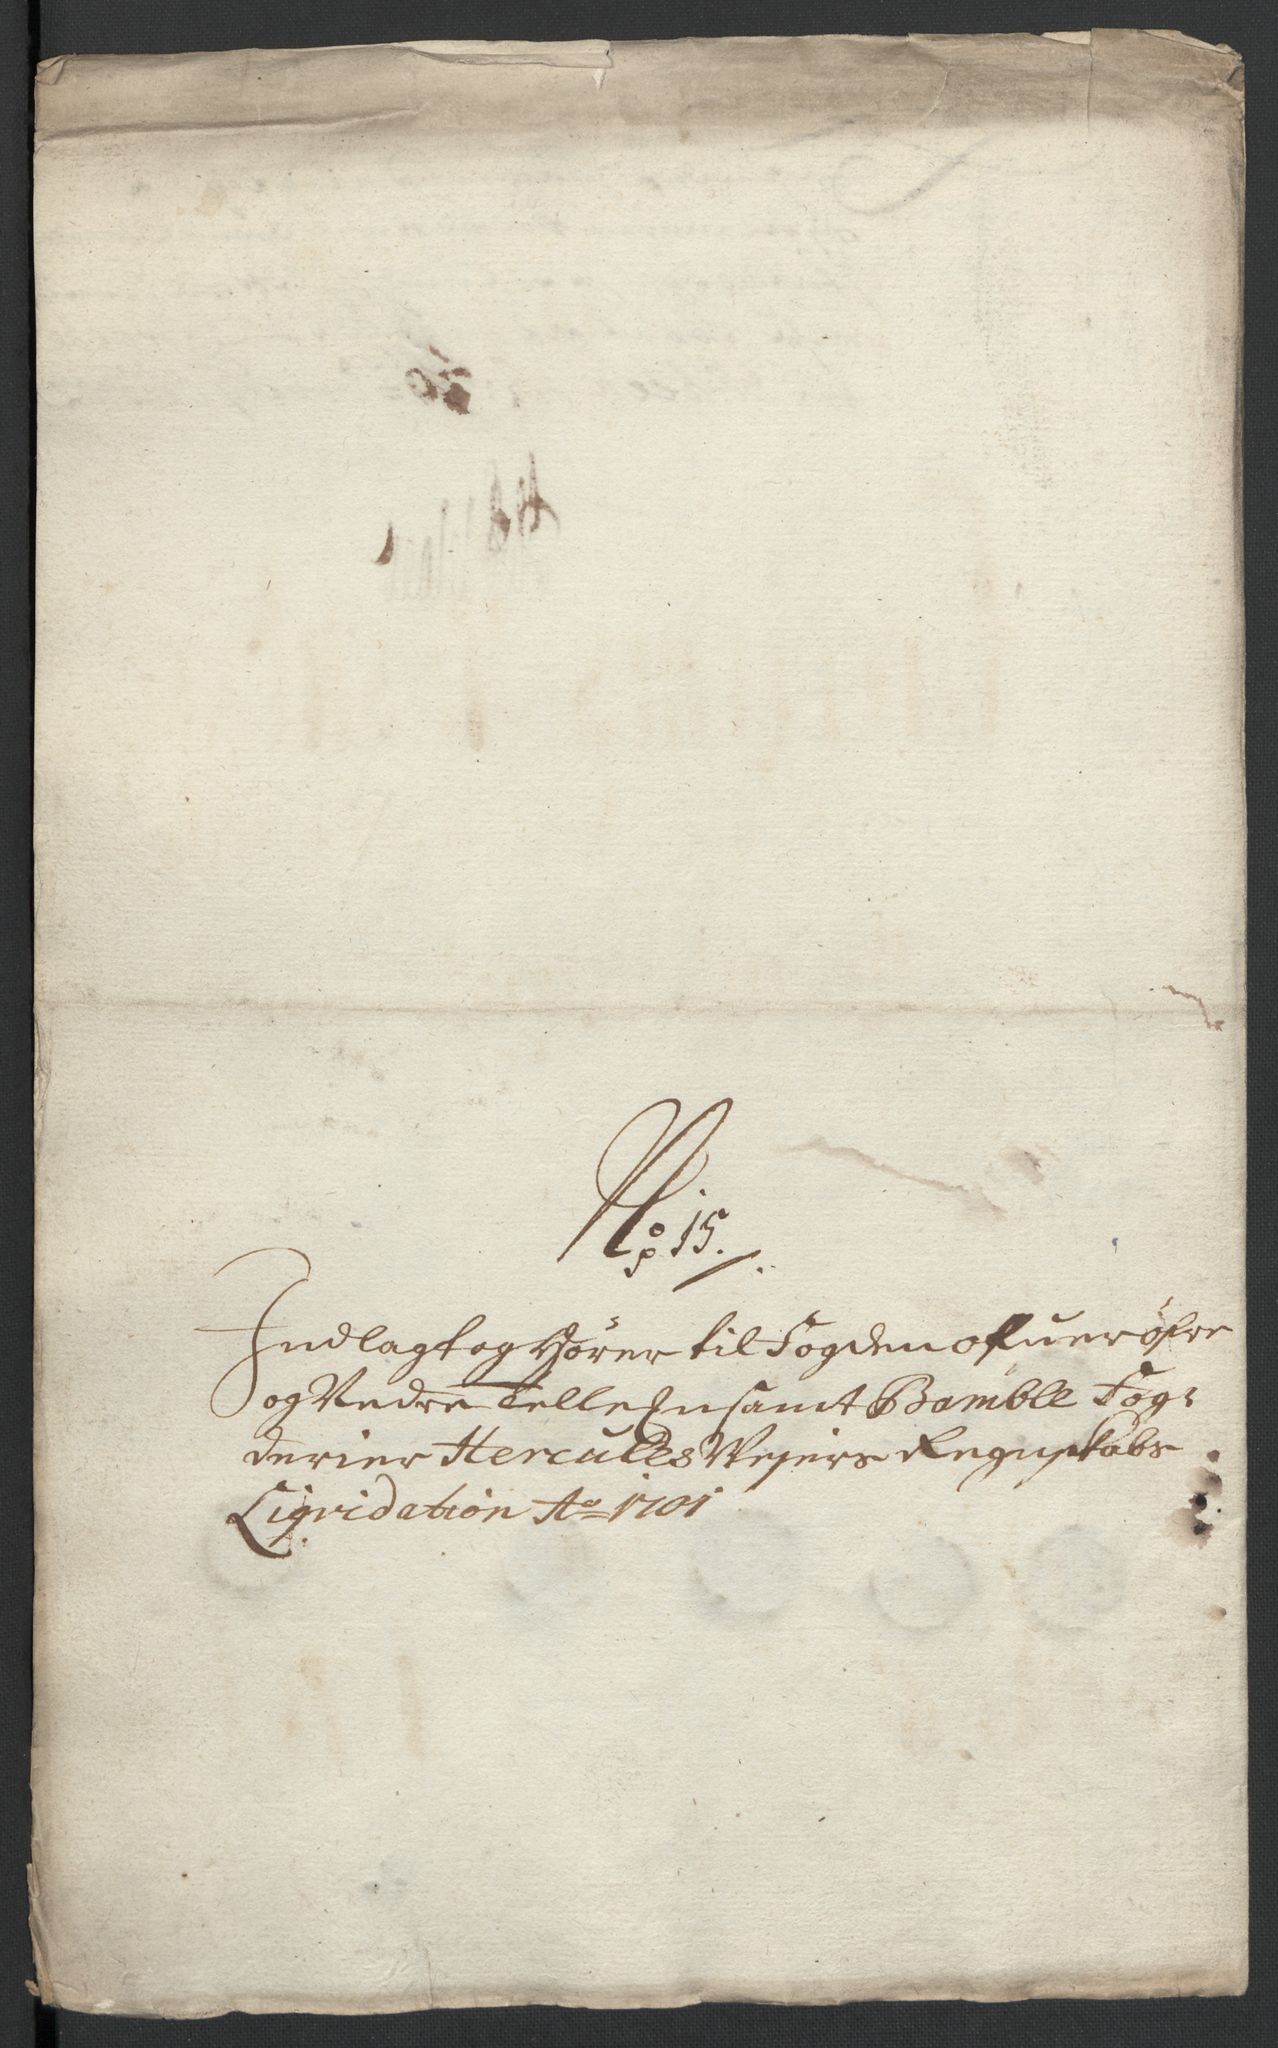 No: 15.
Indlagt og hörer til Fogden ofuer öfre
og Nedre Tellen samt Bamble Fog-
derier Hercules Weÿers Regnskabs
Liqvidation Ao 1701